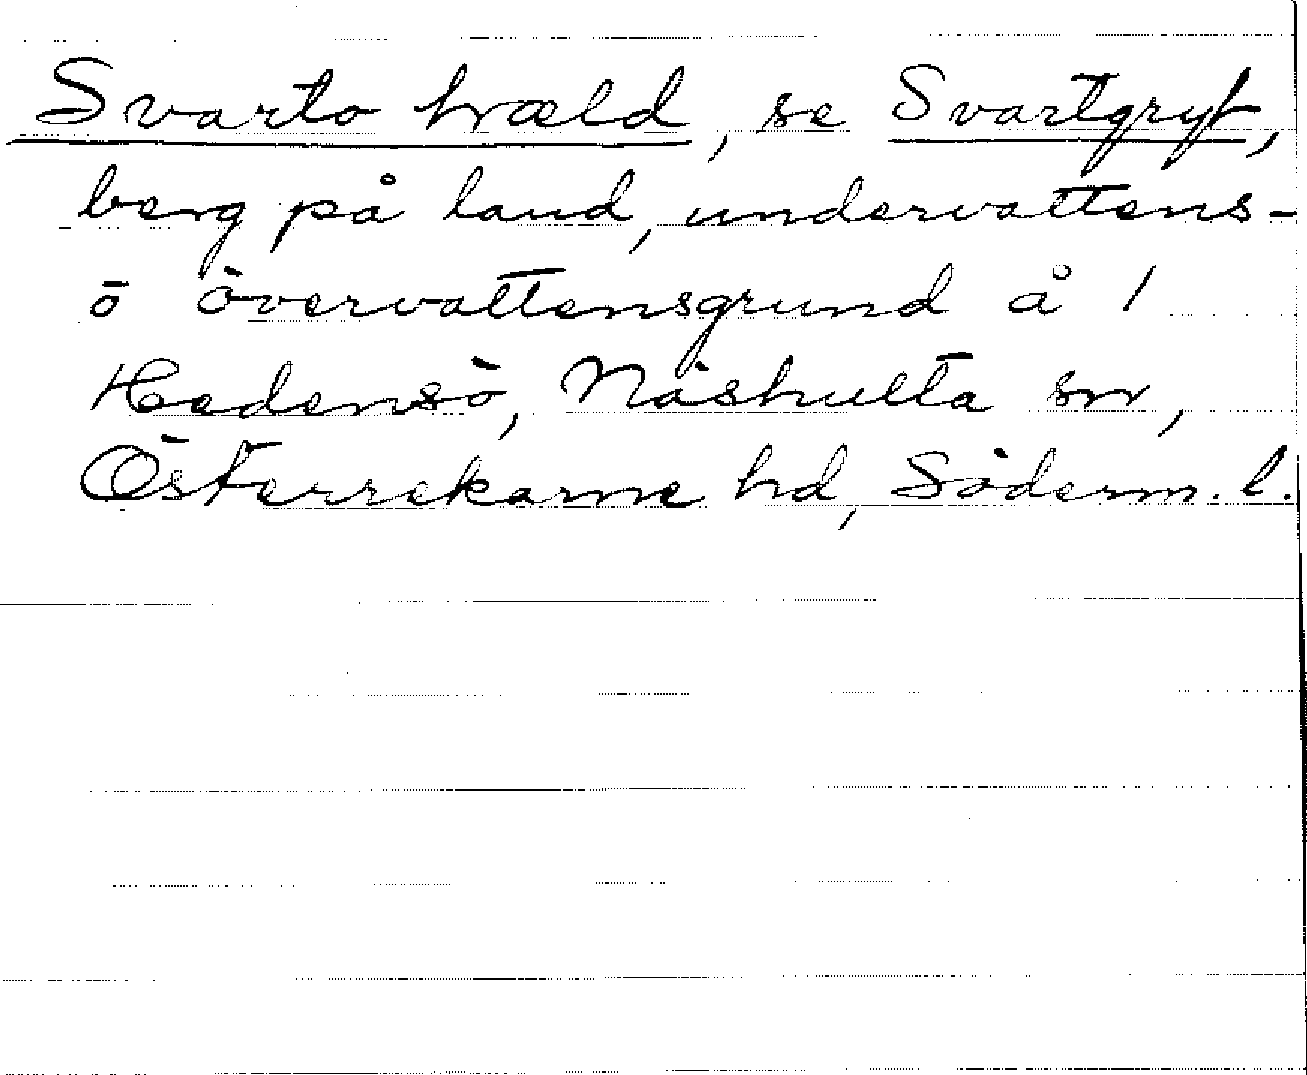 Svarto hväld, se Svartgryt,
berg på land, undervattens-
o övervattensgrund å 1
Hedensö, Näshulta sn,
Österrekarne hd, Söderm. l.